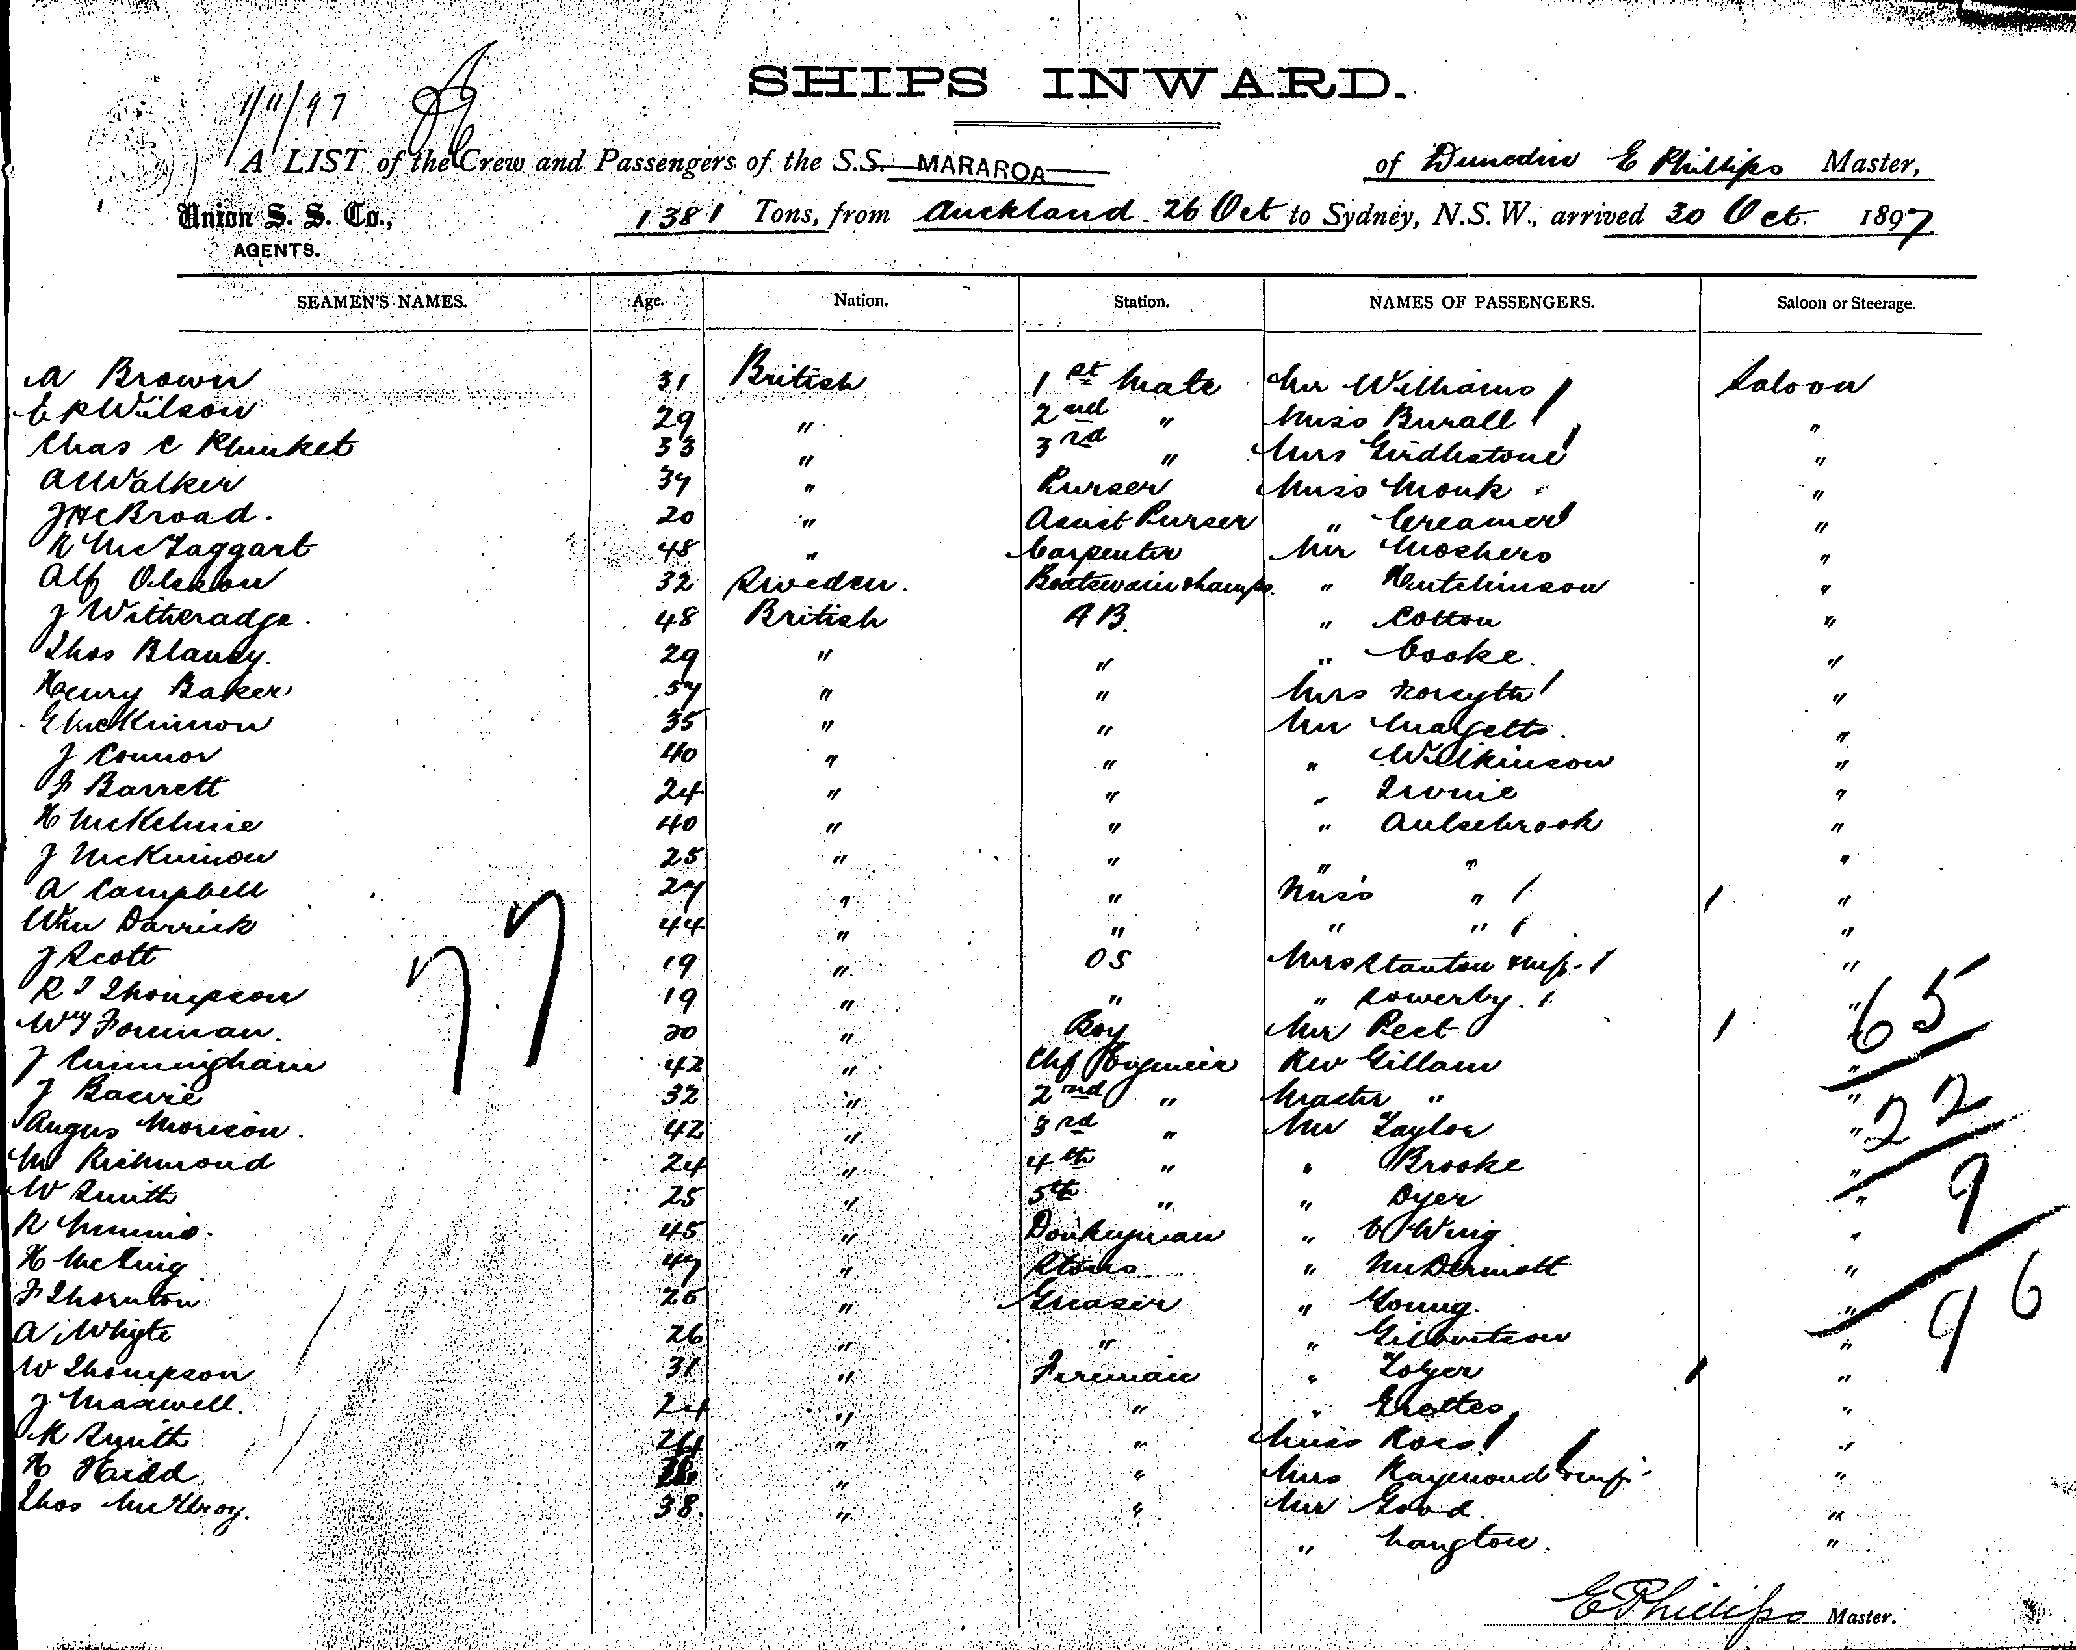 1/11/97
SHIPS INWARD.
A LIST of the Crew and Passengers of the S.S. MARAROA of Dunedin E Phillips Master,
Union S. S. Co., AGENTS.
1381 Tons, from Auckland 26 Oct to Sydney, N.S.W., arrived 30 Oct. 1897
SEAMEN'S NAMES. Age. Nation. Station. NAMES OF PASSENGERS. Saloon or Steerage.
A Brown 31 British 1st Mate Mr Williams Saloon
E R Wilson 29 " 2nd " Miss Burall "
Chas C Plunket 33 " 3rd " Mrs Girdlestone "
A Walker 37 " Purser Miss Monk "
J H C Broad. 20 " Assist Purser " Creamer "
R McTaggart 48 " Carpenter Mr Moshers "
Alf Olsson 32 Sweden. Boatswain & Lamps. " Hutchinson "
J Witheradge. 48 British AB. " Cotton "
Thos Blaney. 29 " " " Cooke. "
Henry Baker 57 " " Mrs Forsyth "
E McKinnon 35 " " Mr Magetts. "
J Connor 40 " " " Wilkinson "
F Barrett 24 " " " Irvine "
H McKelvie 40 " " " Aulsebrook "
J McKinnon 25 " " " " "
A Campbell 27 " " Miss " "
Wm Darrick 44 " " " " "
J Scott 19 " OS Mrs Stanton & inf. "
R J Thompson 19 " " " Sowerby. "
Wm Foreman. 20 " Boy Mr Peet "
J Cunningham 42 " Chf Engineer Rev Gillam "
J Bowie 32 " 2nd " Master " "
Angus Morison. 42 " 3rd " Mr Taylor "
M Richmond 24 " 4th " " Brooke "
W Smith 25 " 5th " " Dyer "
R Mimms. 45 " Donkeyman " Wing "
H McKing 47 " Stores " McDermott "
F Thornton 25 " Greaser " Young. "
A Whyte 26 " " " Gilbertson "
W Thompson 31 " Fireman " Tozer "
J Maxwell. 24 " " " "
R Smith 24 " " Miss Ross "
H Kidd " " Mrs Raymond & inf. "
Thos McIlroy. 38. " " Mr Good. "
" Langton. "
77
65
22
9
96
E Phillips Master.